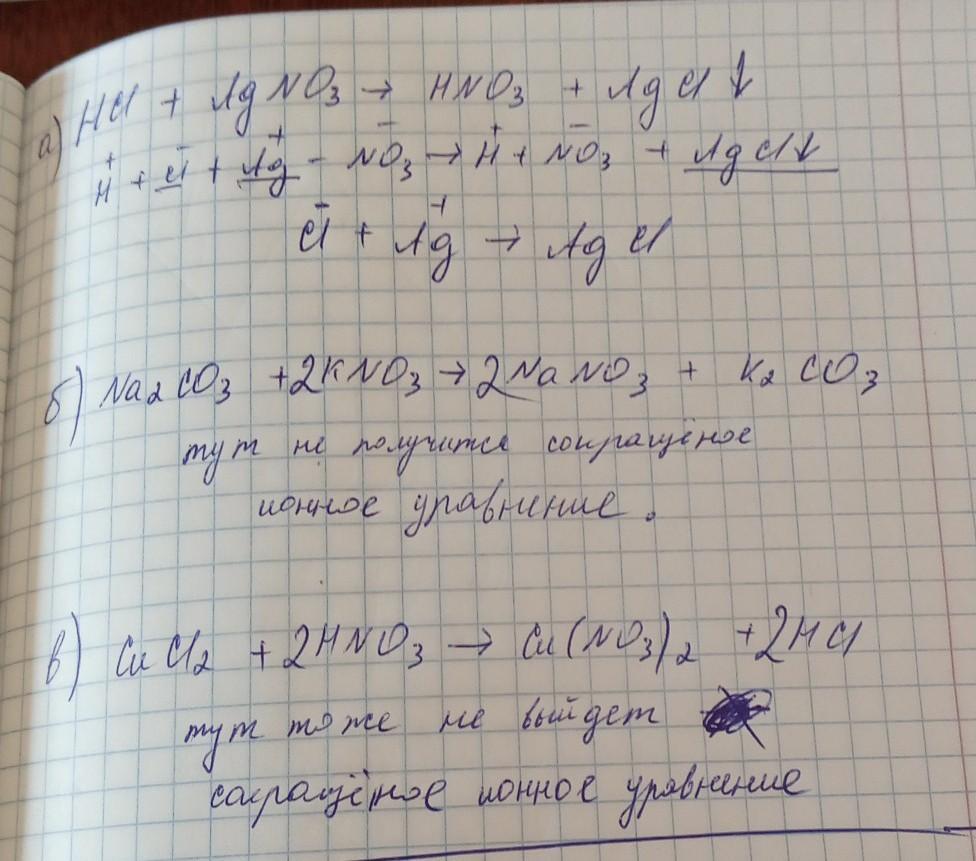 а) HCl + AgNO₃ → HNO₃ + AgCl↓
H⁺ + Cl⁻ + Ag⁺ - NO₃⁻ → H⁺ + NO₃⁻ + AgCl↓
Cl⁻ + Ag⁺ → AgCl
б) Na₂CO₃ + 2KNO₃ → 2NaNO₃ + K₂CO₃
тут не получится сокращёное
ионное уравнение.
в) CuCl₂ + 2HNO₃ → Cu(NO₃)₂ + 2HCl
тут тоже не выйдет
сокращёное ионное уравнение